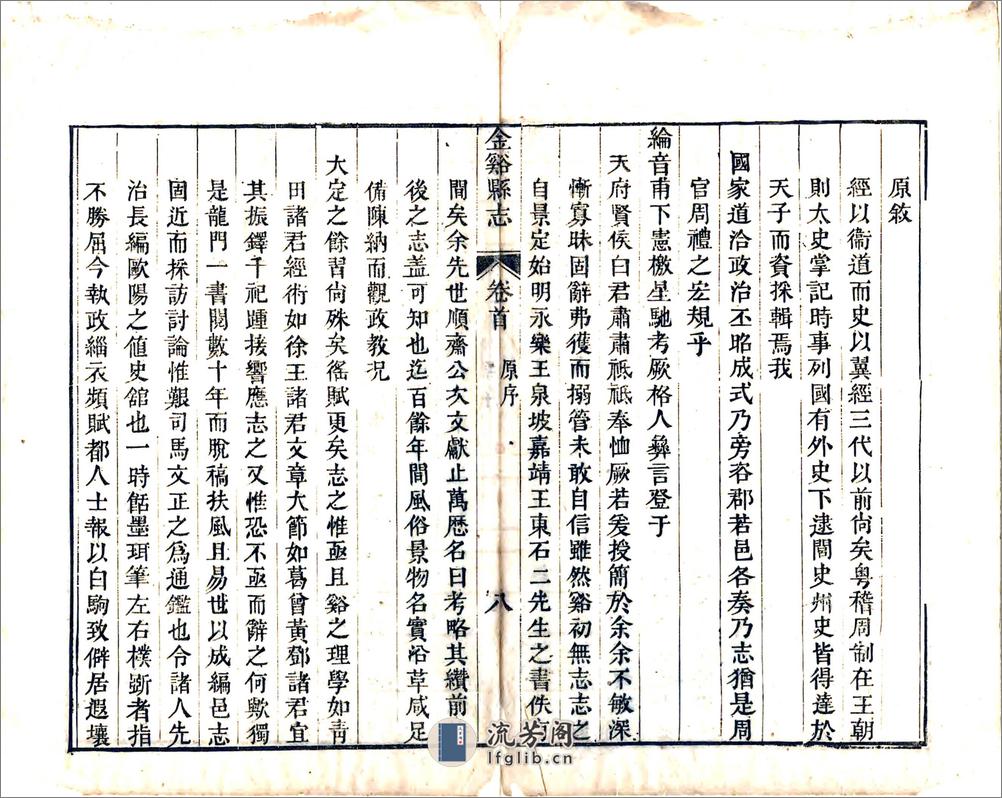 原敘
經以衞道而史以翼經三代以前尙矣粤稽周制在王朝
則太史掌記時事列國有外史下逮閭史州史皆得達於
天子而資採輯焉我
國家道洽政治丕昭成式乃旁咨郡若邑各奏乃志猶是周
官周禮之宏規乎
綸音甫下憲檄星馳考厥格人彝言登于
天府賢侯曰君肅肅祗祗奉恤厥若爰授簡於余余不敏深
慚寡昧固辭弗獲而搦管未敢自信雖然谿初無志志之
自景定始明永樂王泉坡嘉靖王東石二先生之書佚
金谿縣志
卷首
原序
八
間矣余先世順齋公次文獻止萬歷名曰考略其纘前
後之志盖可知也迄百餘年間風俗景物名實沿革咸足
備陳納而觀政教况
大定之餘習尙殊矣徭賦更矣志之惟亟且谿之理學如靑
田諸君經術如徐王諸君文章大節如葛曾黃鄧諸君宜
其振鐸千祀踵接響應志之又惟恐不亟而辭之何歟獨
是龍門一書閱數十年而脫稿扶風且易世以成編邑志
固近而採訪討論惟艱司馬文正之爲通鑑也令諸人先
治長編歐陽之値史舘也一時餂墨珥筆左右樸斲者指
不勝屈今執政緇衣頻賦都人士報以白駒致僻居遐壤
流芳阁
lfglib.cn